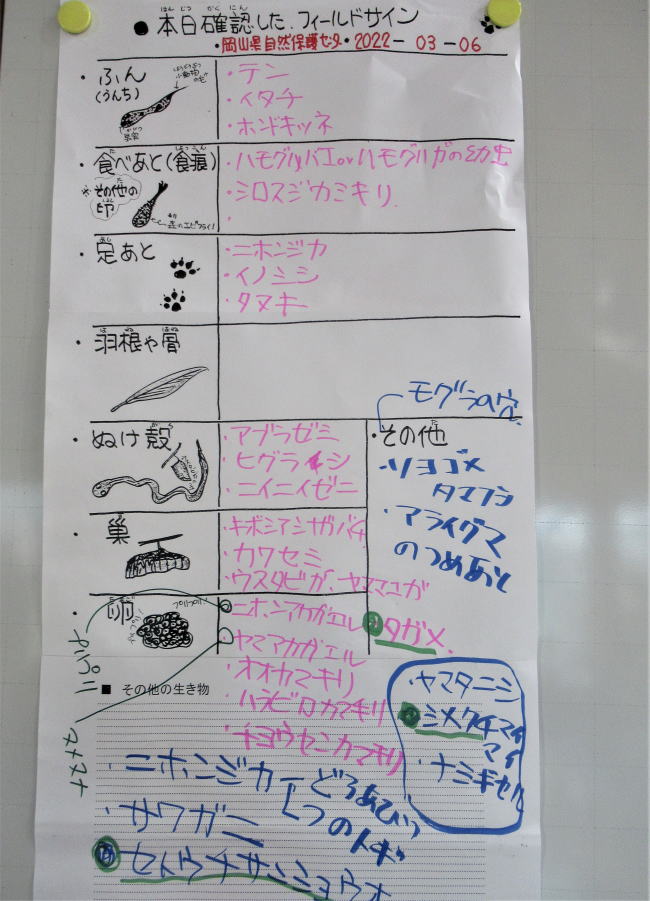 ● 本日確認した.フィールドサイン
ほん じつ かく にん
・岡山県自然保護センタ・2022-03-06
・ふん
(うんち)
・テン
・イタチ
・ホンドキツネ
・食べあと(食痕)
た
※その他の
印
・ハモグリバエorハモグリガの幼虫
・シロスジカミキリ.
・
・足あと
あし
・ニホンジカ
・イノシシ
・タヌキ
・羽根や骨
は ね ほね
・ぬけ殻
・アブラゼミ
・ヒグラシ
・ニイニイゼミ
モグラの穴
・その他
・ソヨゴメ
タマフシ
・アライグマ
のつめあと
・巣
・キボシアシナガバチ
・カワセミ
・ウスタビガ、ヤママユガ
・卵
プリプリ
・ニホンアカガエル
ヤマアカガエル
・オオカマキリ
・ハラビロカマキリ
・チョウセンカマキリ
タガメ.
ヌメヌメ
■ その他の生き物
・ヤマタニシ
シメクチマイ
マイ
・ナミギセル
・ニホンジカ
どろあび
つのトギ
・サワガニ
セトウチサンショウオ